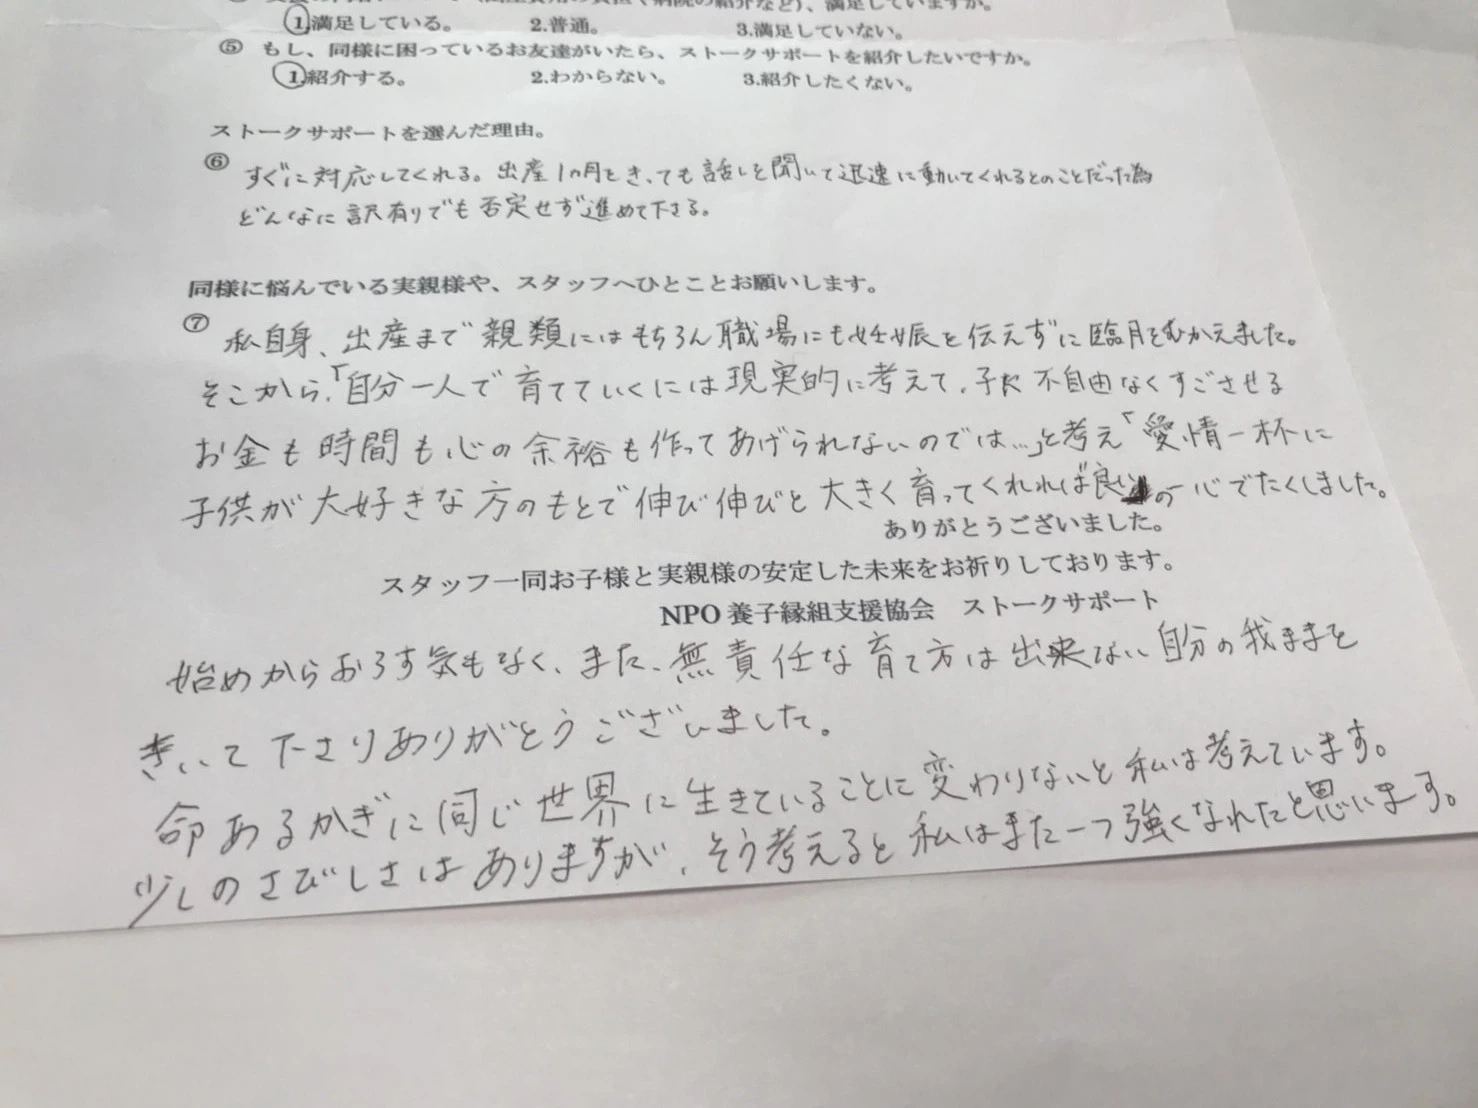 満足していますか。
①満足している。 2.普通。 3.満足していない。
⑤ もし、同様に困っているお友達がいたら、ストークサポートを紹介したいですか。
①紹介する。 2.わからない。 3.紹介したくない。
ストークサポートを選んだ理由。
⑥ すぐに対応してくれる。出産1ヵ月をきっても話しを聞いて迅速に動いてくれるとのことだった為
どんなに訳有りでも否定せず進めて下さる。
同様に悩んでいる実親様や、スタッフへひとことお願いします。
⑦ 私自身、出産まで親類にはもちろん職場にも妊娠を伝えずに臨月をむかえました。
そこから、「自分一人で育てていくには現実的に考えて、子に不自由なくすごさせる
お金も時間も心の余裕も作ってあげられないのでは…」と考え「愛情一杯に
子供が大好きな方のもとで伸び伸びと大きく育ってくれれば良い」の一心でたくしました。
ありがとうございました。
スタッフ一同お子様と実親様の安定した未来をお祈りしております。
NPO 養子縁組支援協会 ストークサポート
始めからおろす気もなく、また、無責任な育て方は出来ない自分の我ままを
きいて下さりありがとうございました。
命あるかぎに同じ世界に生きていることに変わりないと私は考えています。
少しのさびしさはありますが、そう考えると私はまた一つ強くなれたと思います。